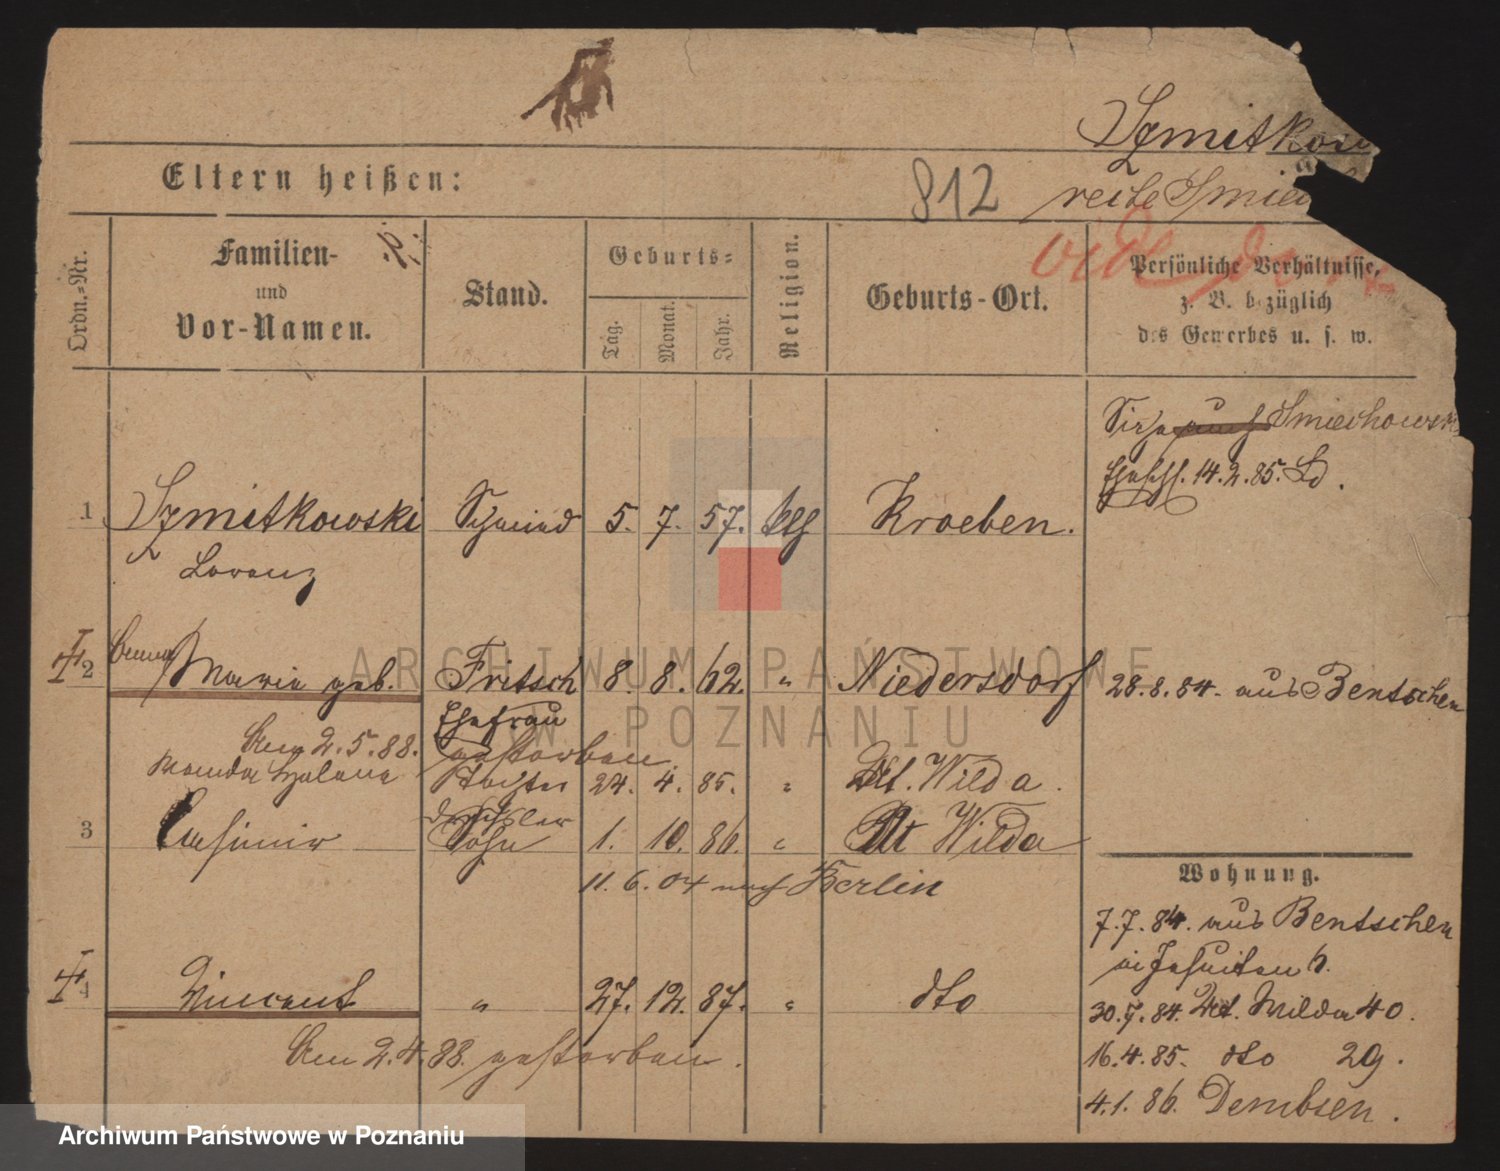 Szmitkows
Eltern heißen:
812
recte Smiec
vide
Ordn.-Nr.
Familien-
und
Vor-Namen.
Stand.
Geburts-
Tag.
Monat.
Jahr.
Religion.
Geburts-Ort.
Persönliche Verhältnisse,
z. B. bezüglich
des Gewerbes u. s. w.
Siehe auch Smiechowski
Ehesch. 14.2.85.
1 Szmitkowski Schmied 5. 7. 57. klg Kroeben.
Lorenz
2 Maria geb. Fritsch 8. 8. 62. " Niedersdorf 28.8.84. aus Bentschen
Ehefrau
Am 2.5.88. gestorben
Helena Tochter 24. 4. 85. " Wilda.
3 Casimir Sohn 1. 10. 86. " Wilda
11.6.04 nach Berlin
Wohnung.
7.7.84. aus Bentschen
Jesuiten 6.
4 Vincent " 27. 12. 87. " dto
30.7.84. Wilda 40.
Am 2.4.88. gestorben.
16.4.85. dto 29.
4.1.86. Dembsen.
ARCHIWUM PAŃSTWOWE
W POZNANIU
Archiwum Państwowe w Poznaniu